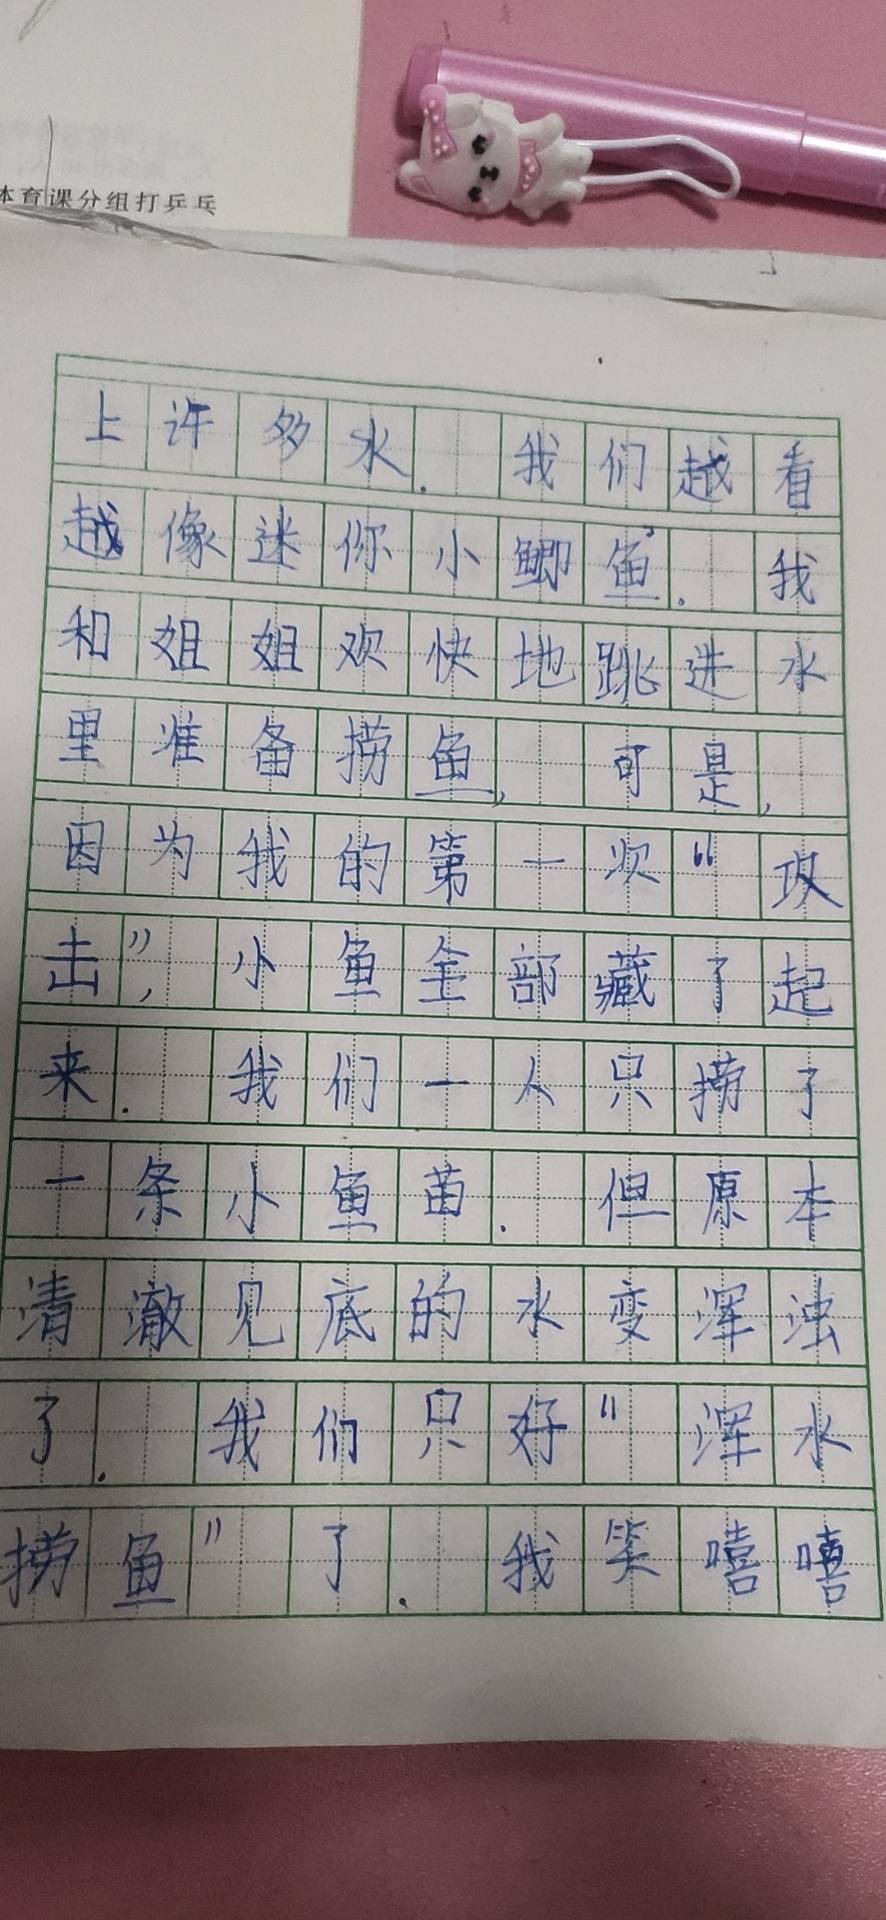 体育课分组打乒乓
上许多水.我们越看
越像迷你小鲫鱼.我
和姐姐欢快地跳进水
里准备捞鱼,可是,
因为我的第一次“攻
击”,小鱼全部藏了起
来.我们一人只捞了
一条小鱼苗.但原本
清澈见底的水变浑浊
了.我们只好"浑水
捞鱼"了.我笑嘻嘻